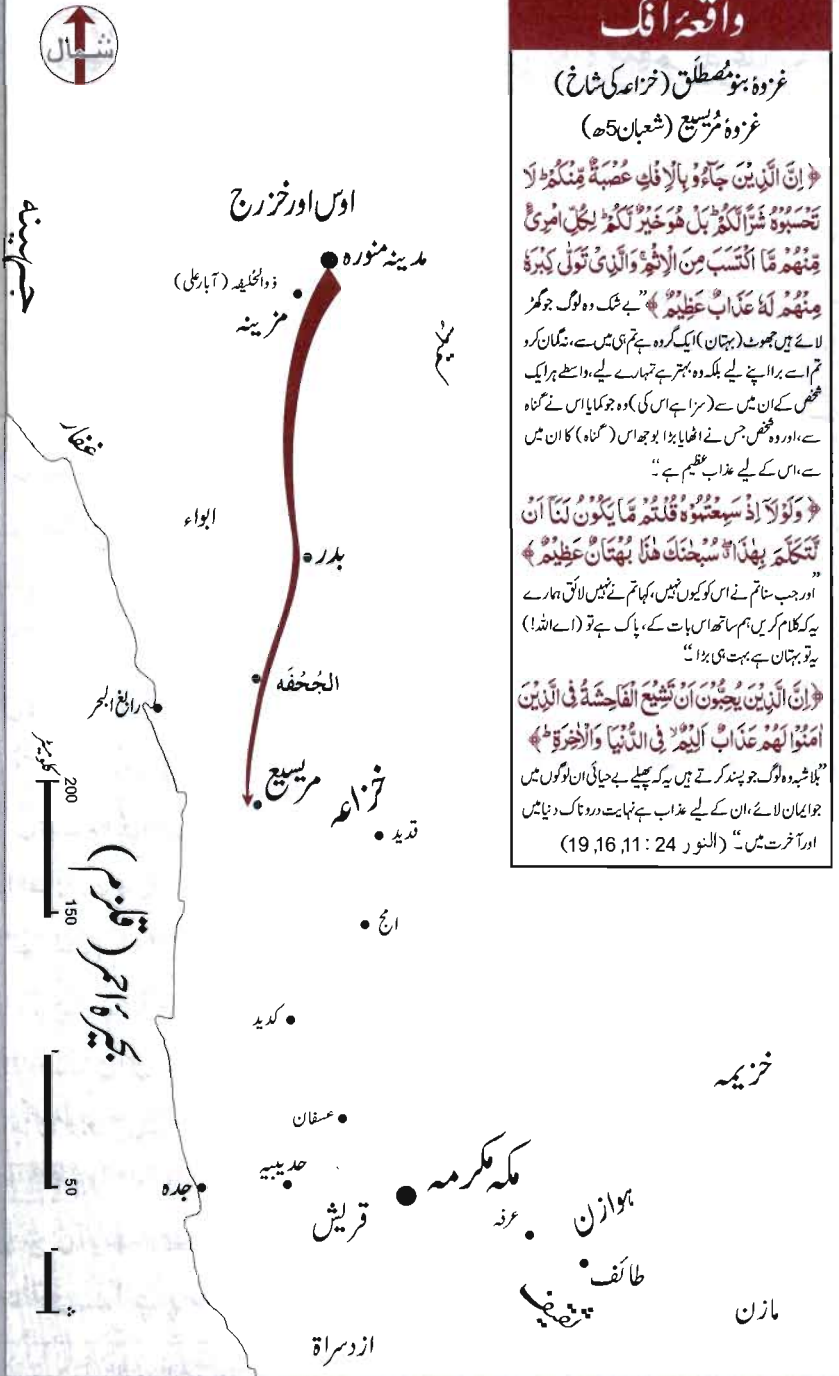 واقعۂ افک
غزوۂ بنو مُصطلَق (خزاعہ کی شاخ)
غزوۂ مُریسیع (شعبان 5ھ)
﴿ اِنَّ الَّذِیْنَ جَآءُوْ بِالْاِفْکِ عُصْبَةٌ مِّنْکُمْ ؕ لَا
تَحْسَبُوْهُ شَرًّا لَّکُمْ ؕ بَلْ هُوَ خَیْرٌ لَّکُمْ ؕ لِکُلِّ امْرِیًٔ
مِّنْهُمْ مَّا اکْتَسَبَ مِنَ الْاِثْمِ ۚ وَالَّذِیْ تَوَلّٰی کِبْرَهٗ
مِنْهُمْ لَهٗ عَذَابٌ عَظِیْمٌ ﴾ ”بے شک وہ لوگ جو گھڑ
لائے ہیں جھوٹ (بہتان) ایک گروہ ہے تم ہی میں سے، نہ گمان کرو
تم اسے برا اپنے لیے بلکہ وہ بہتر ہے تمہارے لیے، واسطے ہر ایک
شخص کے ان میں سے (سزا ہے اس کی) وہ جو کمایا اس نے گناہ
سے، اور وہ شخص جس نے اٹھایا بڑا بوجھ اس (گناہ) کا ان میں
سے، اس کے لیے عذاب عظیم ہے۔“
﴿ وَلَوْلَاۤ اِذْ سَمِعْتُمُوْهُ قُلْتُمْ مَّا یَکُوْنُ لَنَاۤ اَنْ
نَّتَکَلَّمَ بِهٰذَا ۖۗ سُبْحٰنَکَ هٰذَا بُهْتَانٌ عَظِیْمٌ ﴾
”اور جب سنا تم نے اس کو کیوں نہیں، کہا تم نے نہیں لائق ہمارے
یہ کہ کلام کریں ہم ساتھ اس بات کے، پاک ہے تو (اے اللہ!)
یہ تو بہتان ہے بہت ہی بڑا۔“
﴿ اِنَّ الَّذِیْنَ یُحِبُّوْنَ اَنْ تَشِیْعَ الْفَاحِشَةُ فِی الَّذِیْنَ
اٰمَنُوْا لَهُمْ عَذَابٌ اَلِیْمٌ ۙ فِی الدُّنْیَا وَالْاٰخِرَةِ ؕ ﴾
”بلاشبہ وہ لوگ جو پسند کرتے ہیں یہ کہ پھیلے بے حیائی ان لوگوں میں
جو ایمان لائے، ان کے لیے عذاب ہے نہایت دردناک دنیا میں
اور آخرت میں۔“ (النور 24 : 11, 16, 19)
شمال
جہینہ
اوس اور خزرج
مدینہ منورہ
ذوالحلیفہ (آبار علی)
مزینہ
سلیم
غفار
ابواء
بدر
الجُحفَہ
رابغ البحر
مریسیع
خزاعہ
قدید
کلومیٹر
200
150
50
بحیرۂ احمر (قلزم)
امج
کدید
خزیمہ
عسفان
حدیبیہ
جدہ
مکہ مکرمہ
قریش
عرفہ
ہوازن
طائف
ثقیف
مازن
ازد سراۃ